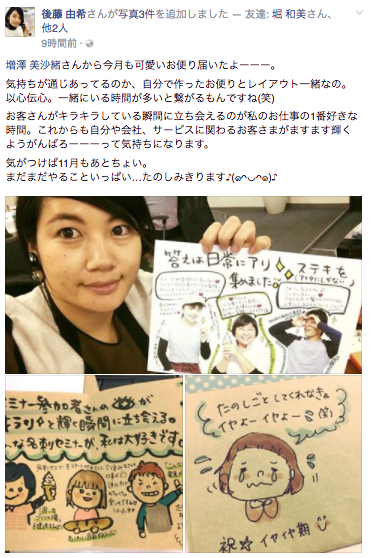 後藤 由希さんが写真3件を追加しました — 友達: 堀 和美さん、
他2人
9時間前
増澤 美沙緒さんから今月も可愛いお便り届いたよーーー。
気持ちが通じあってるのか、自分で作ったお便りとレイアウト一緒なの。
以心伝心。一緒にいる時間が多いと繋がるもんですね(笑)
お客さんがキラキラしている瞬間に立ち会えるのが私のお仕事の1番好きな
時間。これからも自分や会社、サービスに関わるお客さまがますます輝く
ようがんばろーーーって気持ちになります。
気がつけば11月もあとちょい。
まだまだやることいっぱい…たのしみきります♪(๑◠◡◠๑)♪
答えは日常にアリ
ステキを
集めました
ミナー参加者さんの
が
キラリと輝く瞬間に立ち会える
んな名刺セミナーが、私は大好きです
たのしごとしてくれなきゃ
イヤよーイヤよー
(笑)
祝☆イヤイヤ期